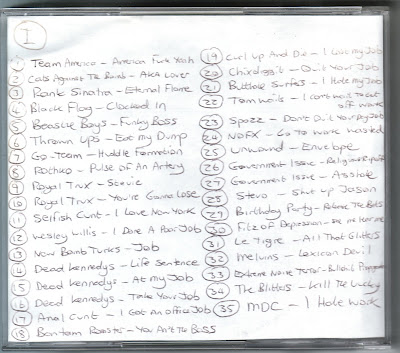 I
1 Team America - America Fuck Yeah
2 Cats Against The Bomb - AKA Lover
3 Rank Sinatra - Eternal Flame
4 Black Flag - Clocked In
5 Beastie Boys - Funky Boss
6 Thrown Ups - Eat my Dump
7 Go-Team - Huddle Formation
8 Rothko - Pulse of An Artery
9 Royal Trux - Stevie
10 Royal Trux - You're Gonna Lose
11 Selfish Cunt - I Love New York
12 Wesley Willis - I Are A Poor Job
13 New Bomb Turks - Job
14 Dead Kennedys - Life Sentence
15 Dead Kennedys - At my Job
16 Dead Kennedys - Take Your Job
17 Anal Cunt - I Got An office Job
18 Bantam Rooster - You Ain't The Boss
19 Curl Up And Die - I Love my Job
20 Chixdiggit - Quit Your Job
21 Butthole Surfers - I Hate my Job
22 Tom Waits - I can't wait to get
off work
23 Spazz - Don't Quit Your Day Job
24 NOFX - Go To Work Wasted
25 Unwound - Envelope
26 Government Issue - Religious
27 Government Issue - Asshole
28 Stevo - Shut up Jason
29 Birthday Party - Release The Bats
30 Fitz of Depression - see me hear me
31 Le Tigre - All That Glitters
32 Melvins - Lexicon Devil
33 Extreme Noise Terror - Bullshit Propaganda
34 The Blitters - Kill The
35 MDC - I Hate Work